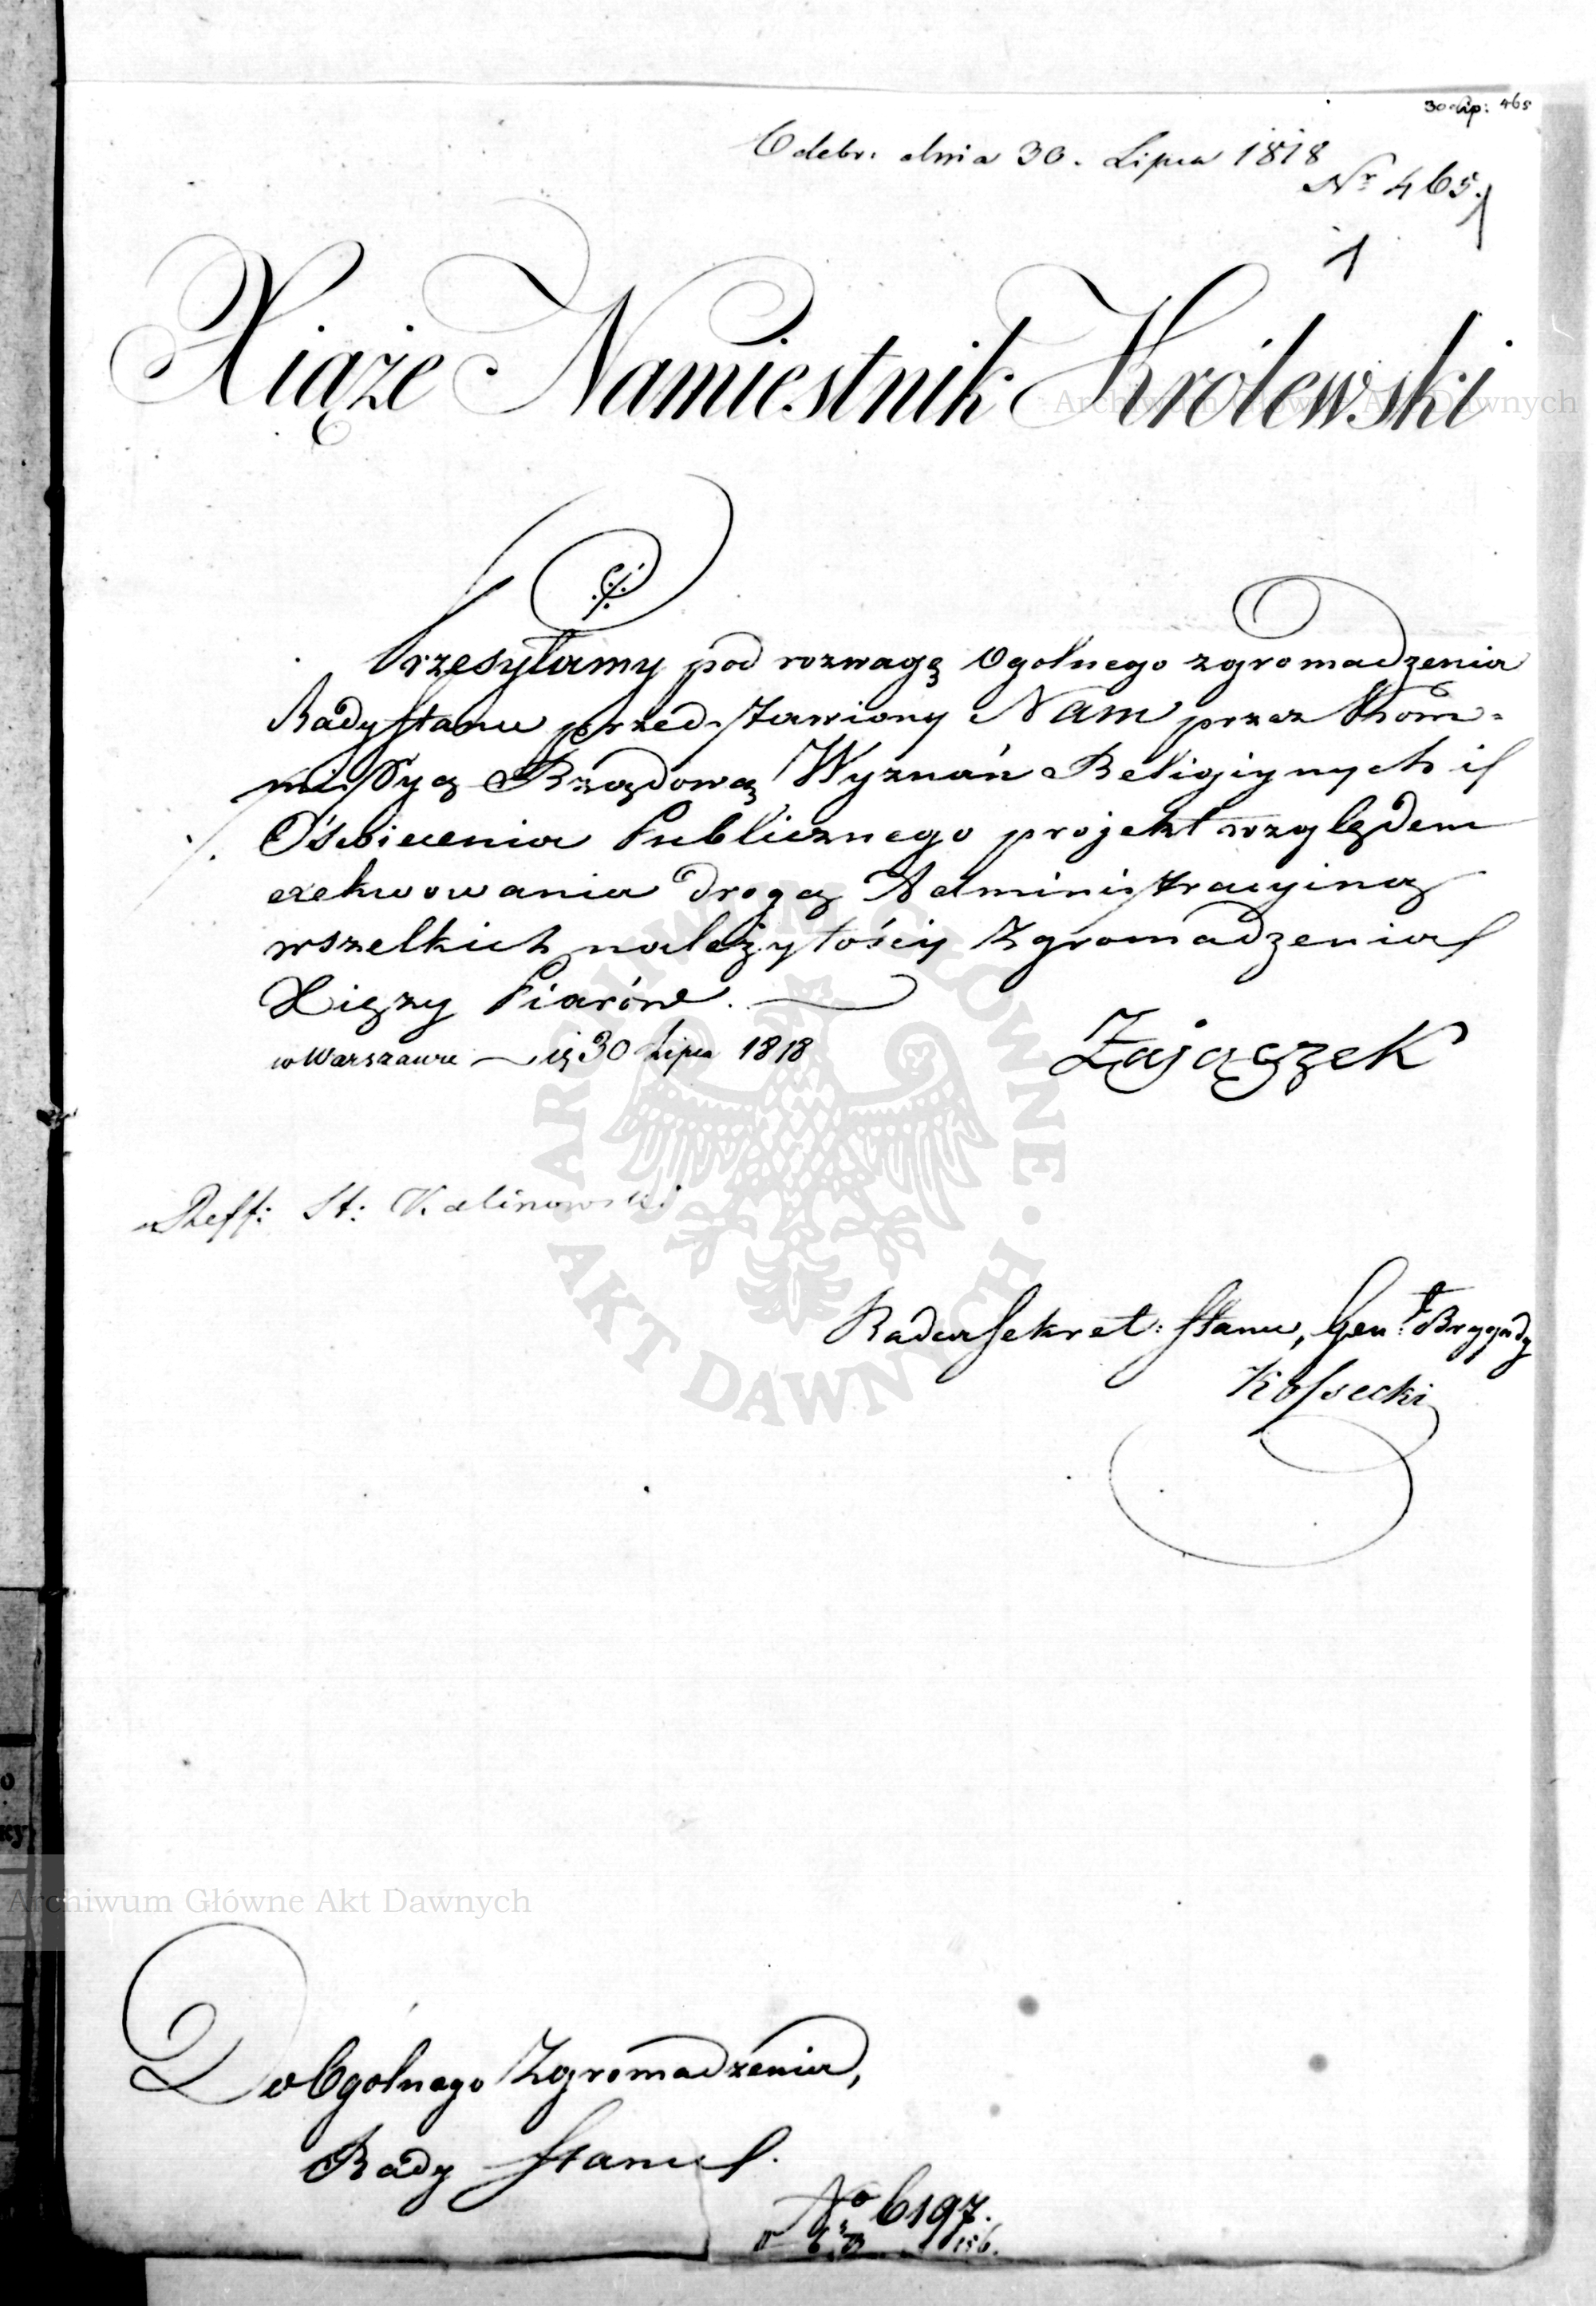 30 Lip: 465
Odebr. dnia 30. Lipca 1818
Nr 465.
1
Xiąże Namiestnik Królewski
Archiwum Główne Akt Dawnych
Przesyłamy pod rozwagę Ogolnego zgromadzenia
Rady Stanu przedstawiony Nam przez Kom=
missyą Rządową Wyznań Religiynych i
Oświecenia Publicznego projekt względem
exekwowania drogą Administracyiną
wszelkich należytości Zgromadzenia
Xięży Piarów.
w Warszawie 30 Lipca 1818
Zajączek
Reff: St: Kalinowski
Radca Sekret: Stanu, Gen:ł Brygady
Kossecki
ARCHIWUM GŁÓWNE · AKT DAWNYCH ·
Archiwum Główne Akt Dawnych
Do Ogolnego Zgromadzenia,
Rady Stanu.
No 6197.